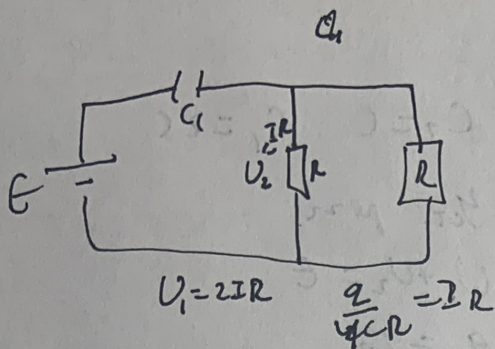 Q₁
C₁
IR
E
U₂ R
R
U₁ = 2IR
q/4CR = IR